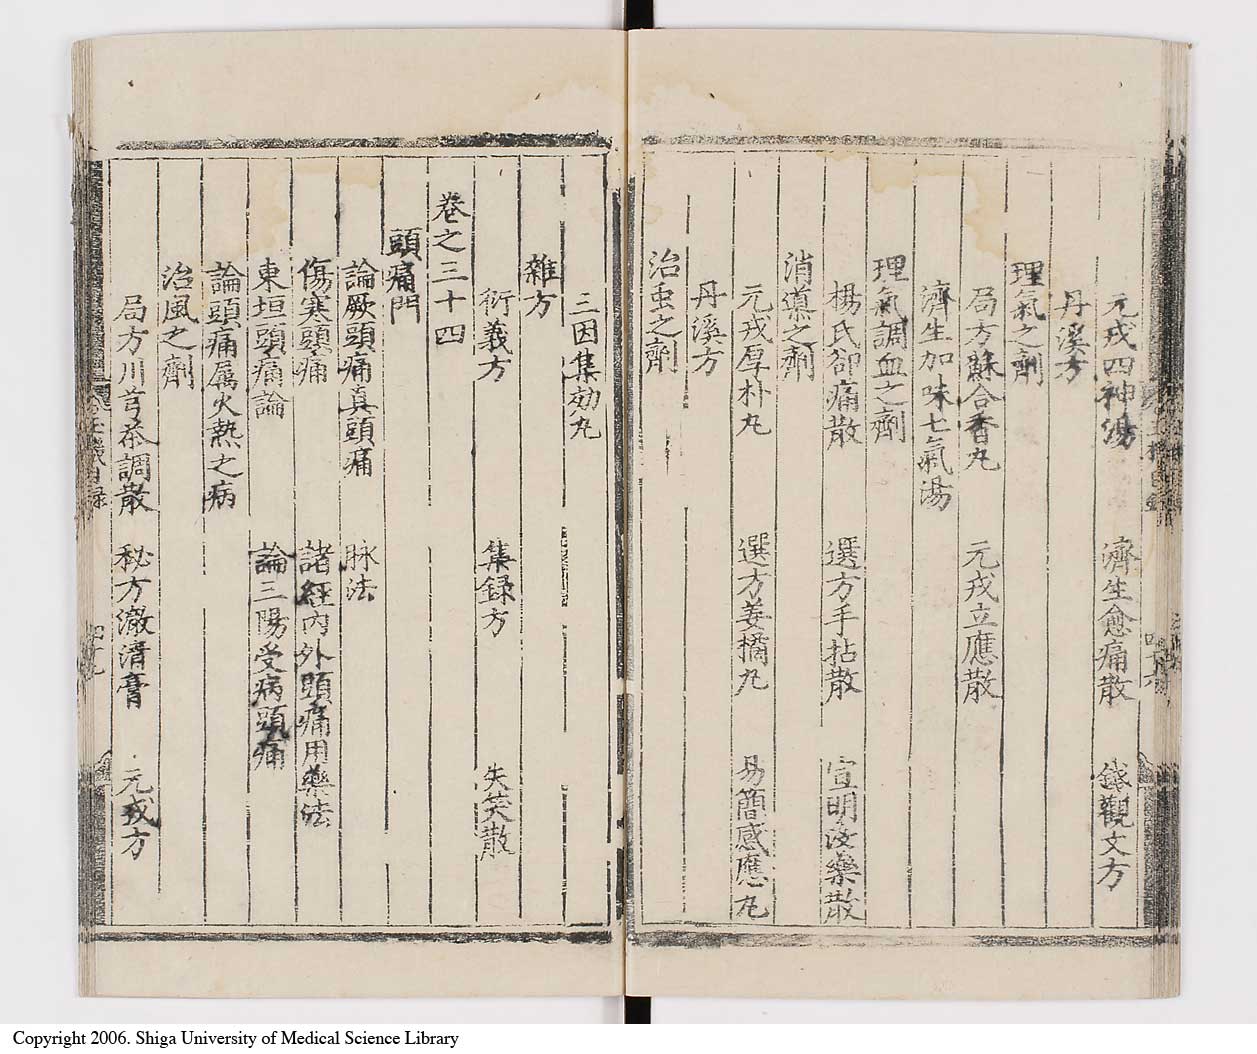 元戎四神湯　濟生愈痛散　錢觀文方
丹溪方
理氣之劑
局方蘇合香丸　元戎立應散
濟生加味七氣湯
理氣調血之劑
楊氏卻痛散　選方手拈散　宣明沒藥散
消導之劑
元戎厚朴丸　選方姜橘丸　易簡感應丸
丹溪方
治虫之劑
三因集効丸
雜方
衍義方　集録方　失笑散
巻之三十四
頭痛門
論厥頭痛真頭痛　脉法
傷寒頭痛　諸經內外頭痛用藥法
東垣頭痛論　論三陽受病頭痛
論頭痛属火熱之病
治風之劑
局方川芎茶調散　秘方澈清膏　元戎方
Copyright 2006. Shiga University of Medical Science Library